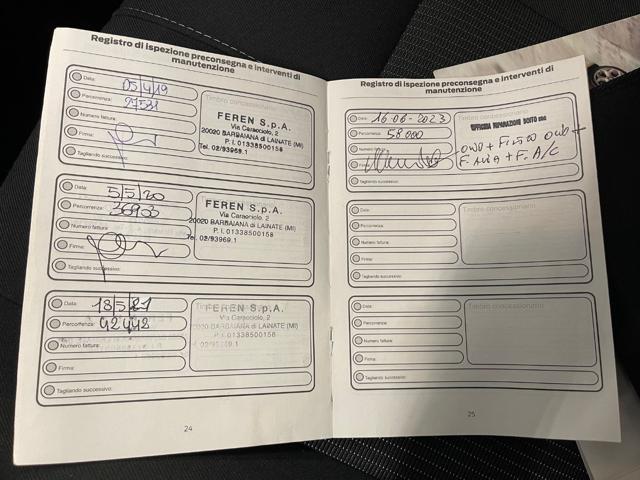 Registro di ispezione preconsegna e interventi di
manutenzione
Data: 05/4/19
Percorrenza: 27531
Numero fattura:
Firma:
Tagliando successivo:
Timbro concessionario
FEREN S.p.A.
Via Caracciolo, 2
20020 BARBAIANA di LAINATE (MI)
P. I. 01338500158
Tel. 02/93969.1
Data: 5/5/20
Percorrenza: 36933
Numero fattura:
Firma:
Tagliando successivo:
FEREN S.p.A.
Via Caracciolo, 2
20020 BARBAIANA di LAINATE (MI)
P. I. 01338500158
Tel. 02/93969.1
Data: 18/5/21
Percorrenza: 42442
Numero fattura:
Firma:
Tagliando successivo:
FEREN S.p.A.
Via Caracciolo, 2
20020 BARBAIANA di LAINATE (MI)
P. I. 01338500158
02/93969.1
24
Registro di ispezione preconsegna e interventi di
manutenzione
Data: 16-06-2023
Percorrenza: 58000
Numero
Tagliando successivo:
Timbro concessionario
OFFICINA RIPARAZIONI BOITO snc
F. ARIA + F. A/C
Data:
Percorrenza:
Numero fattura:
Firma:
Tagliando successivo:
Timbro concessionario
Data:
Percorrenza:
Numero fattura:
Firma:
Tagliando successivo:
Timbro concessionario
25